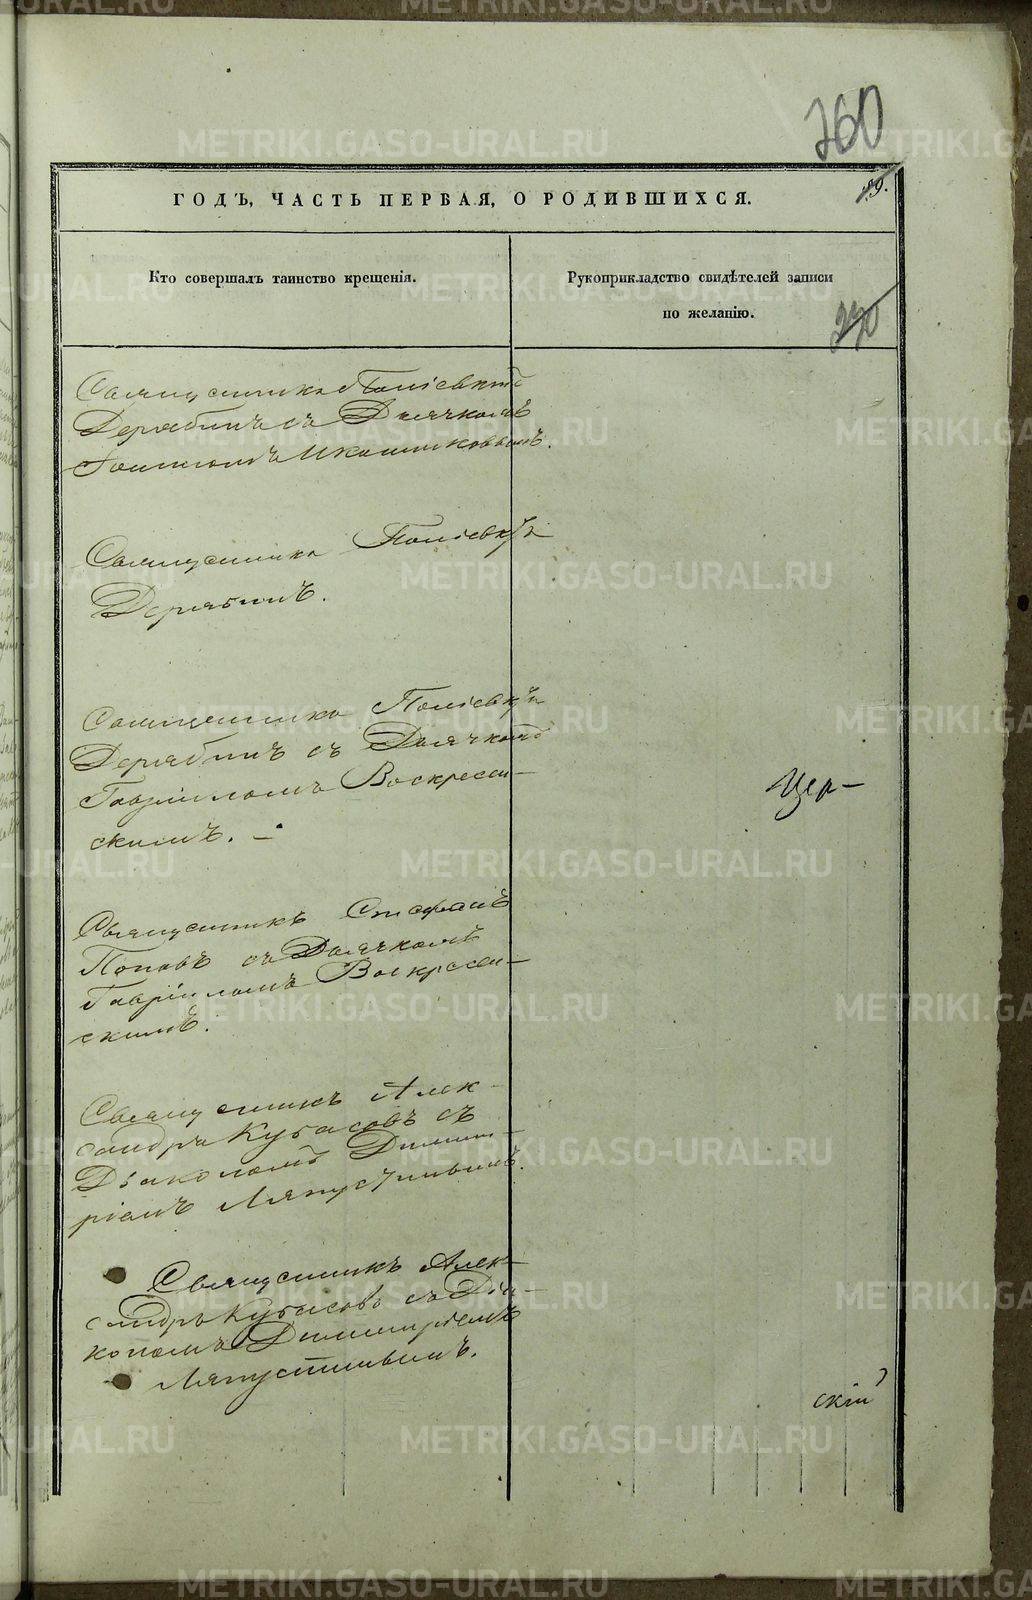 260
ГОДЪ, ЧАСТЬ ПЕРВАЯ, О РОДИВШИХСЯ.
Кто совершалъ таинство крещенія.
Рукоприкладство свидѣтелей записи
по желанію.
270
Священникъ Поліевктъ
Дерябинъ съ Дьячкомъ
Иконниковымъ.
Священникъ Поліевктъ
Дерябинъ.
Священникъ Поліевктъ
Дерябинъ съ Дьячкомъ
Гавріиломъ Воскресен-
скимъ. —
Цер-
Священникъ Стефанъ
Поповъ съ Дьячкомъ
Гавріиломъ Воскресен-
скимъ.
Священникъ Алек-
сандръ Кубасовъ съ
Діакономъ Димит-
ріемъ Ляпустинымъ.
Священникъ Алек-
сандръ Кубасовъ съ Діа-
кономъ Димитріемъ
Ляпустинымъ.
скій
METRIKI.GASO-URAL.RU